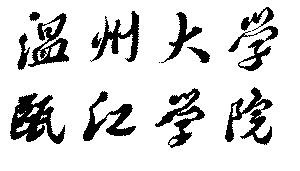 温州大学
瓯江学院